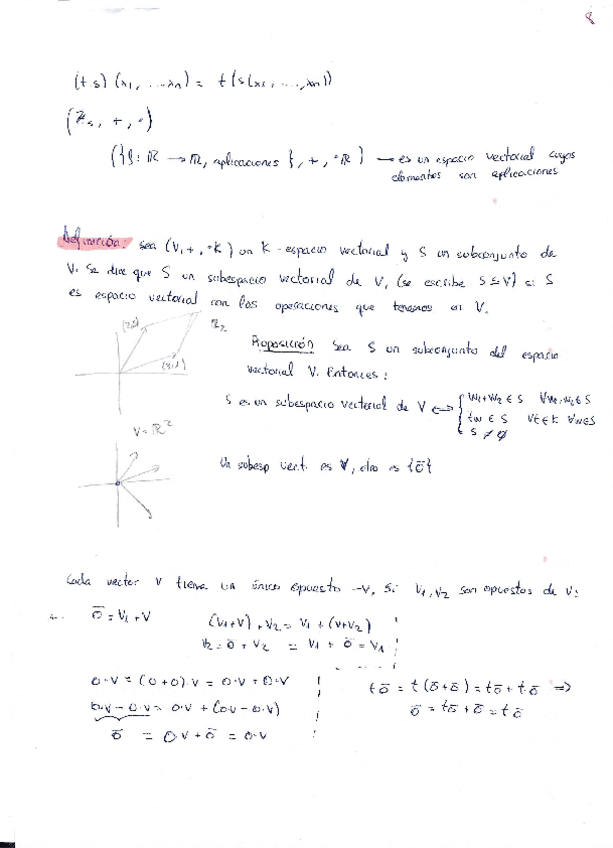 8
(t s) (x₁, ... xₙ) = t(s(x₁, ..., xₙ))
(ℤ₅, +, ·)
({f: ℝ → ℝ, aplicaciones}, +, ·ℝ) → es un espacio vectorial cuyos
elementos son aplicaciones
Definición: Sea (V, +, ·K) un K-espacio vectorial y S un subconjunto de
V. Se dice que S un subespacio vectorial de V, (se escribe S ≤ V) si S
es espacio vectorial con las operaciones que tenemos en V.
Proposición Sea S un subconjunto del espacio
vectorial V. Entonces:
S es un subespacio vectorial de V ⟺ { w₁+w₂ ∈ S ∀w₁,w₂ ∈ S
tw ∈ S ∀t ∈ K ∀w ∈ S
S ≠ ∅
V = ℝ²
Un subesp vect. es V, otro es {0̄}
Cada vector v tiene un único opuesto -v, Si v₁, v₂ son opuestos de v:
0̄ = v₁ + v
(v₁+v)+v₂ = v₁ + (v+v₂)
v₂ = 0̄ + v₂ = v₁ + 0̄ = v₁
0·v = (0+0)·v = 0·v + 0·v
0·v - 0·v = 0·v + (0·v - 0·v)
0̄ = 0·v + 0̄ = 0·v
t0̄ = t(0̄+0̄) = t0̄ + t0̄ ⇒
0̄ = t0̄ + 0̄ = t0̄